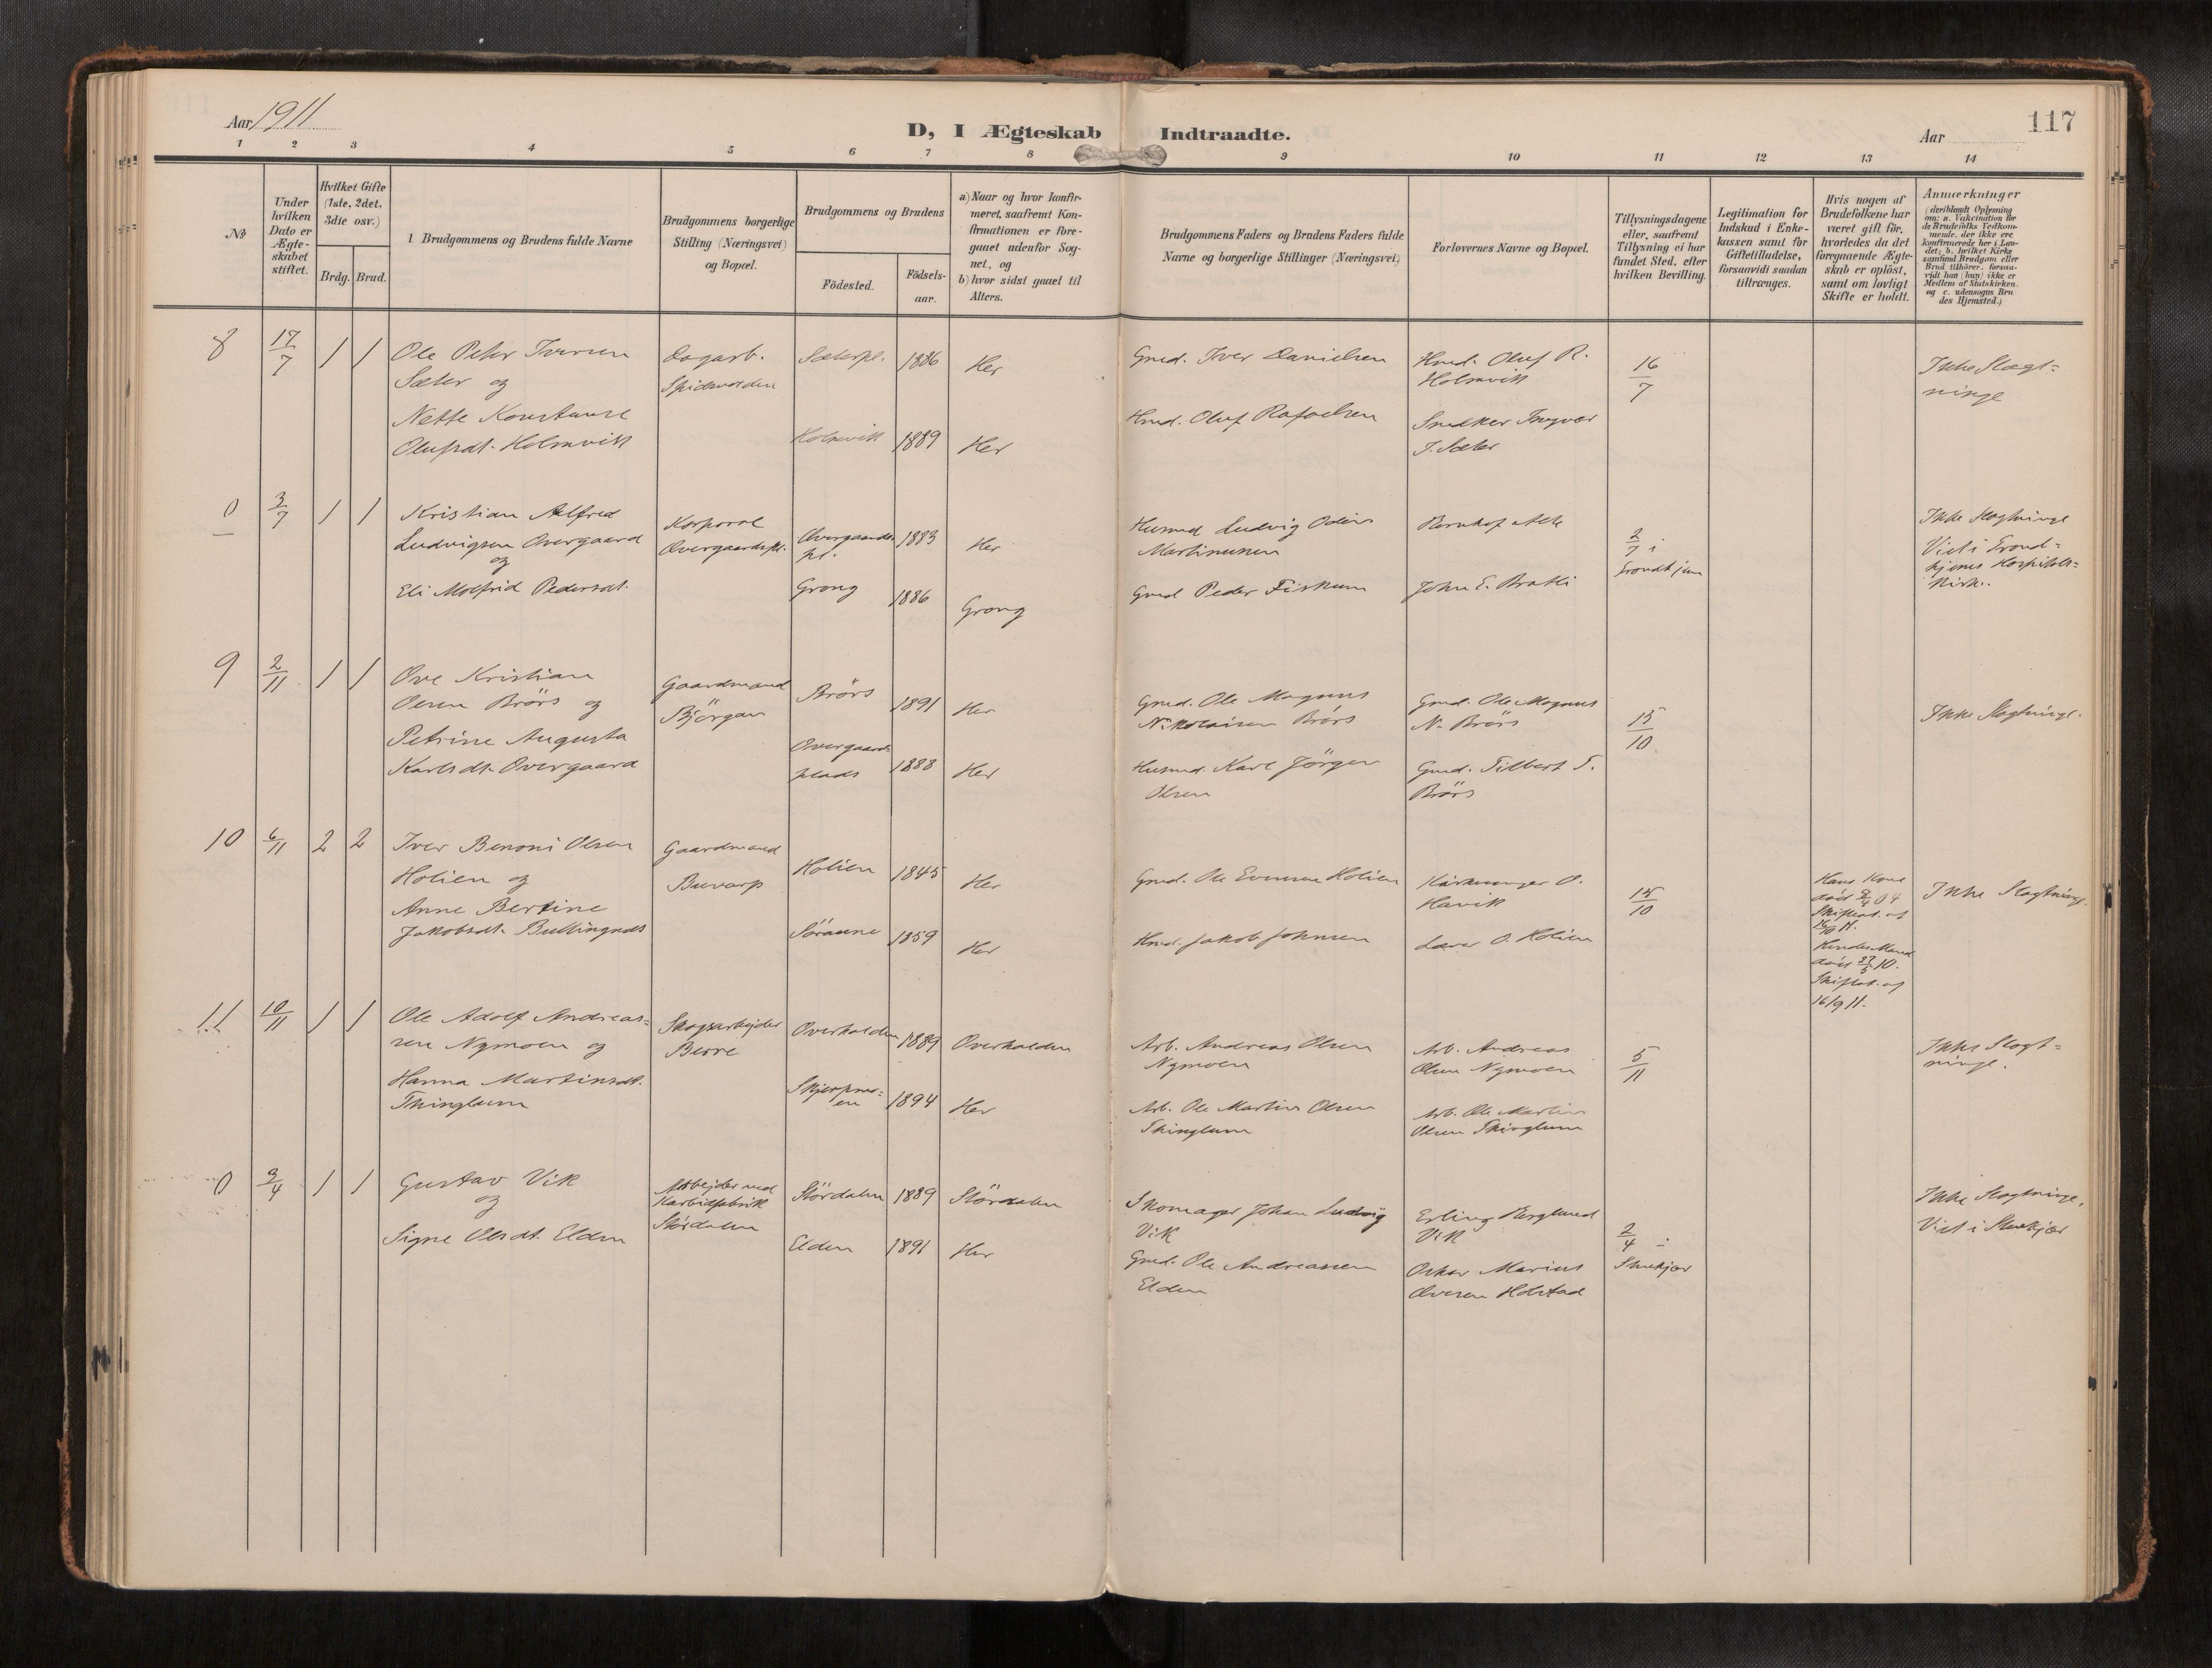 Aar 1911
D, I Ægteskab Indtraadte.
Aar
117
1 2 3 4 5 6 7 8 9 10 11 12 13 14
No
Under
hvilken
Dato er
Ægte-
skabet
stiftet.
Hvilket Gifte
(1ste, 2det,
3die osv.)
Brdg. Brud.
Brudgommens og Brudens fulde Navne
Brudgommens borgerlige
Stilling (Næringsvei)
og Bopæl.
Brudgommens og Brudens
Födested.
Födsels-
aar.
a) Naar og hvor konfir-
meret, saafremt Kon-
firmationen er fore-
gaaet udenfor Sog-
net, og
b) hvor sidst gaaet til
Alters.
Brudgommens Faders og Brudens Faders fulde
Navne og borgerlige Stillinger (Næringsvei)
Forlovernes Navne og Bopæl.
Tillysningsdagene
eller, saafremt
Tillysning ei har
fundet Sted, efter
hvilken Bevilling.
Legitimation for
Indskud i Enke-
kassen samt for
Giftetilladelse,
forsaavidt saadan
tiltrænges.
Hvis nogen af
Brudefolkene har
været gift för,
hvorledes da det
foregaaende Ægte-
skab er oplöst,
samt om lovligt
Skifte er holdt.
Anmærkninger
(deriblandt Oplysning
om: a. Vakcination for
de Brudefolks Vedkom-
mende, der ikke ere
konfirmerede her i Lan-
det; b. hvilket Kirke
samfund Brudgom eller
Brud tilhörer, forsaa-
vidt han (hun) ikke er
Medlem af Statskirken.
og c. udensogns Bru
des Hjemsted.)
8 17/7 1 1
Ole Peter Iversen
Sæter og
Nette Konstanse
Olufsdt. Holmvik
Dagarb.
Sæterpl. 1886 Her
Holmvik 1889 Her
Gmd. Iver Danielsen
Hmd. Oluf Rafaelsen
Hmd. Oluf R.
Holmvik
Snedker Ingvar
I. Sæter
16/7
Ikke Slægt=
ninge
0 3/7 1 1
Kristian Alfred
Ludvigsen Overgaard
og
Eli Molfrid Pedersdt.
Korporal
Overgaardspl.
Overgaards
pl. 1883 Her
Grong 1886 Grong
Husmd Ludvig Odin
Martinusen
Gmd Peder Fiskum
John E. Bratli
2/7 i
Trondhjem
Ikke Slægtninge
Viet i Trond=
hjems Hospitals=
kirke.
9 2/11 1 1
Ove Kristian
Olsen Brörs og
Petrine Augusta
Karlsdt. Overgaard
Gaardmand
Björgan
Brörs 1891 Her
Overgaards
plads 1888 Her
Gmd. Ole Magnus
Nikolaisen Brörs
Husmd. Karl Jörgen
Olsen
Gmd. Ole Magnus
N. Brörs
Gmd. Tilbert T.
Brörs
15/10
Ikke Slægtninge.
10 6/11 2 2
Iver Benoni Olsen
Holien og
Anne Bertine
Jakobsdt. Bullingnæs
Gaardmand
Buvarp
Holien 1845 Her
Söraune 1859 Her
Gmd. Ole Evensen Holien
Hmd. Jakob Johnsen
Kirkesanger O.
Havik
Lærer O. Holien
15/10
Hans Kone
död 04
Skifteat. af
16/10 11.
Hendes Mand
död 27/5 10.
Skifteat. af
16/9 11.
Ikke Slægtninge.
11 10/11 1 1
Ole Adolf Andreas=
sen Nymoen og
Hanna Martinsdt.
Thinglum
Skogsarbejder
Berre
Overhalden 1889 Overhalden
1894 Her
Arb. Andreas Olsen
Nymoen
Arb. Ole Martin Olsen
Thinglum
Arb. Andreas
Olsen Nymoen
Arb. Ole Martin
Olsen Thinglum
5/11
Ikke Slægt=
ninge.
0 3/4 1 1
Gustav Vik
og
Signe Olsdt. Elden
Arbejder ved
Karbidfabrik
Stördalen
Stördalen 1889 Stördalen
Elden 1891 Her
Skomager Johan Ludvig
Vik
Gmd. Ole Andreassen
Elden
Erling Berglund
Vik
Oskar Marius
Ovesen Holstad
2/4 i
Stenkjær
Ikke Slægtninge.
Viet i Stenkjær